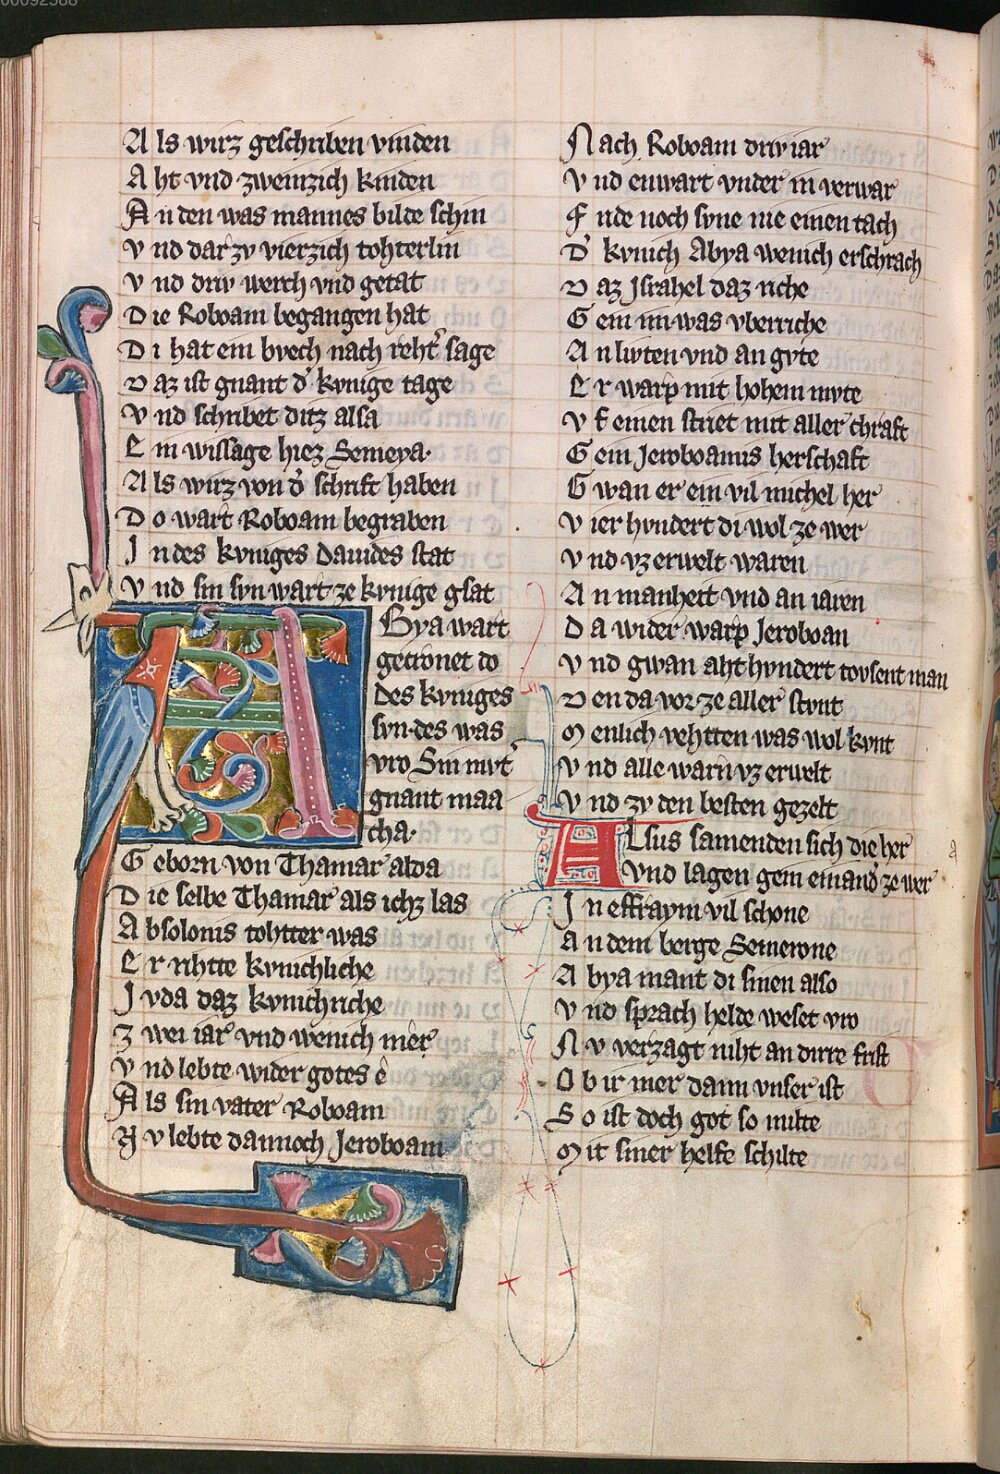 Als wirz geschriben vinden
Aht vnd zweinzich kinden
An den was mannes bilde schin
Vnd dar zv vierzich tohterlin
Vnd driv werch vnd getat
Die Roboam begangen hat
Di hat ein bvech nach reht̾ sage
Daz ist gnant d̾ kvnige tage
Vnd schribet ditz alsa
Ein wissage hiez Semeya·
Als wirz von d̾ schrift haben
Do wart Roboam begraben
In des kvniges Dauides stat
Vnd sin svn wart ze kvnige gsat
Abya wart
getronet do
des kvniges
svn·des was
vro Sin mvt̾
gnant maa
cha·
Geborn von Thamar alda
Die selbe Thamar als ichz las
Absolonis tohtter was
Er rihtte kvnichliche
Jvda daz kvnichriche
Zwei iar vnd wenich mêr
Vnd lebte wider gotes ê
Als sin vater Roboam
Nv lebte dannoch Jeroboam
Nach Roboam driv iar
Vnd enwart vnder in verwar
Fride noch svne nie einen tach
D̾ kvnich Abya wenich erschrach
Daz Jsrahel daz riche
Gein im was vberriche
An livten vnd an gvte
Er warp mit hohem mvte
Vf einen striet mit aller chraft
Gein Jeroboamis herschaft
Gwan er ein vil michel her
Vier hvndert di wol ze wer
Vnd vz erwelt waren
An manheit vnd an iaren
Da wider warp Jeroboan
Vnd gwan aht hvndert tovsent man
Den da vor ze aller stvnt
Menlich vehtten was wol kvnt
Vnd alle warn vz erwelt
Vnd zv den besten gezelt
Alsus samenden sich die her
Vnd lagen gein einand̾ ze wer
In effraym vil schone
An dem berge Semerone
Abya mant di sinen also
Vnd sprach helde weset vro
Nv verzagt niht an dirre frist
Ob ir mer dann vnser ist
So ist doch got so milte
Mit siner helfe schilte